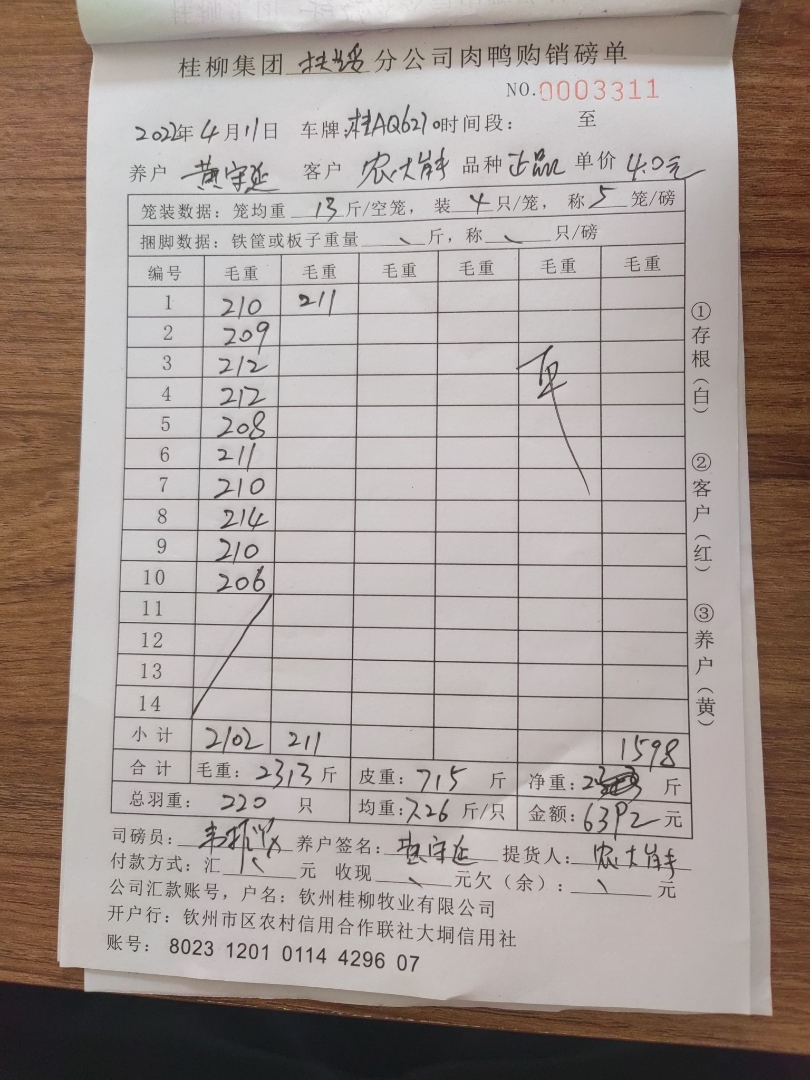 桂柳集团 扶绥 分公司肉鸭购销磅单
NO.0003311
2022年4月11日 车牌:桂AQ6210 时间段: 至
养户 黄守延 客户 农大岸 品种 正品 单价 4.0元
笼装数据:笼均重 13 斤/空笼, 装 4 只/笼, 称 5 笼/磅
捆脚数据:铁筐或板子重量 、 斤,称 、 只/磅
编号 毛重 毛重 毛重 毛重 毛重 毛重
1 210 211
2 209
3 212
4 212
5 208
6 211
7 210
8 214
9 210
10 206
11
12
13
14
小计 2102 211 1598
合计 毛重: 2313 斤 皮重: 715 斤 净重: 斤
总羽重: 220 只 均重: 7.26 斤/只 金额: 6392 元
司磅员: 养户签名: 黄守延 提货人: 农大岸
付款方式:汇 、 元 收现 、 元欠(余): 、 元
公司汇款账号,户名:钦州桂柳牧业有限公司
开户行:钦州市区农村信用合作联社大垌信用社
账号: 8023 1201 0114 4296 07
①存根(白)
②客户(红)
③养户(黄)